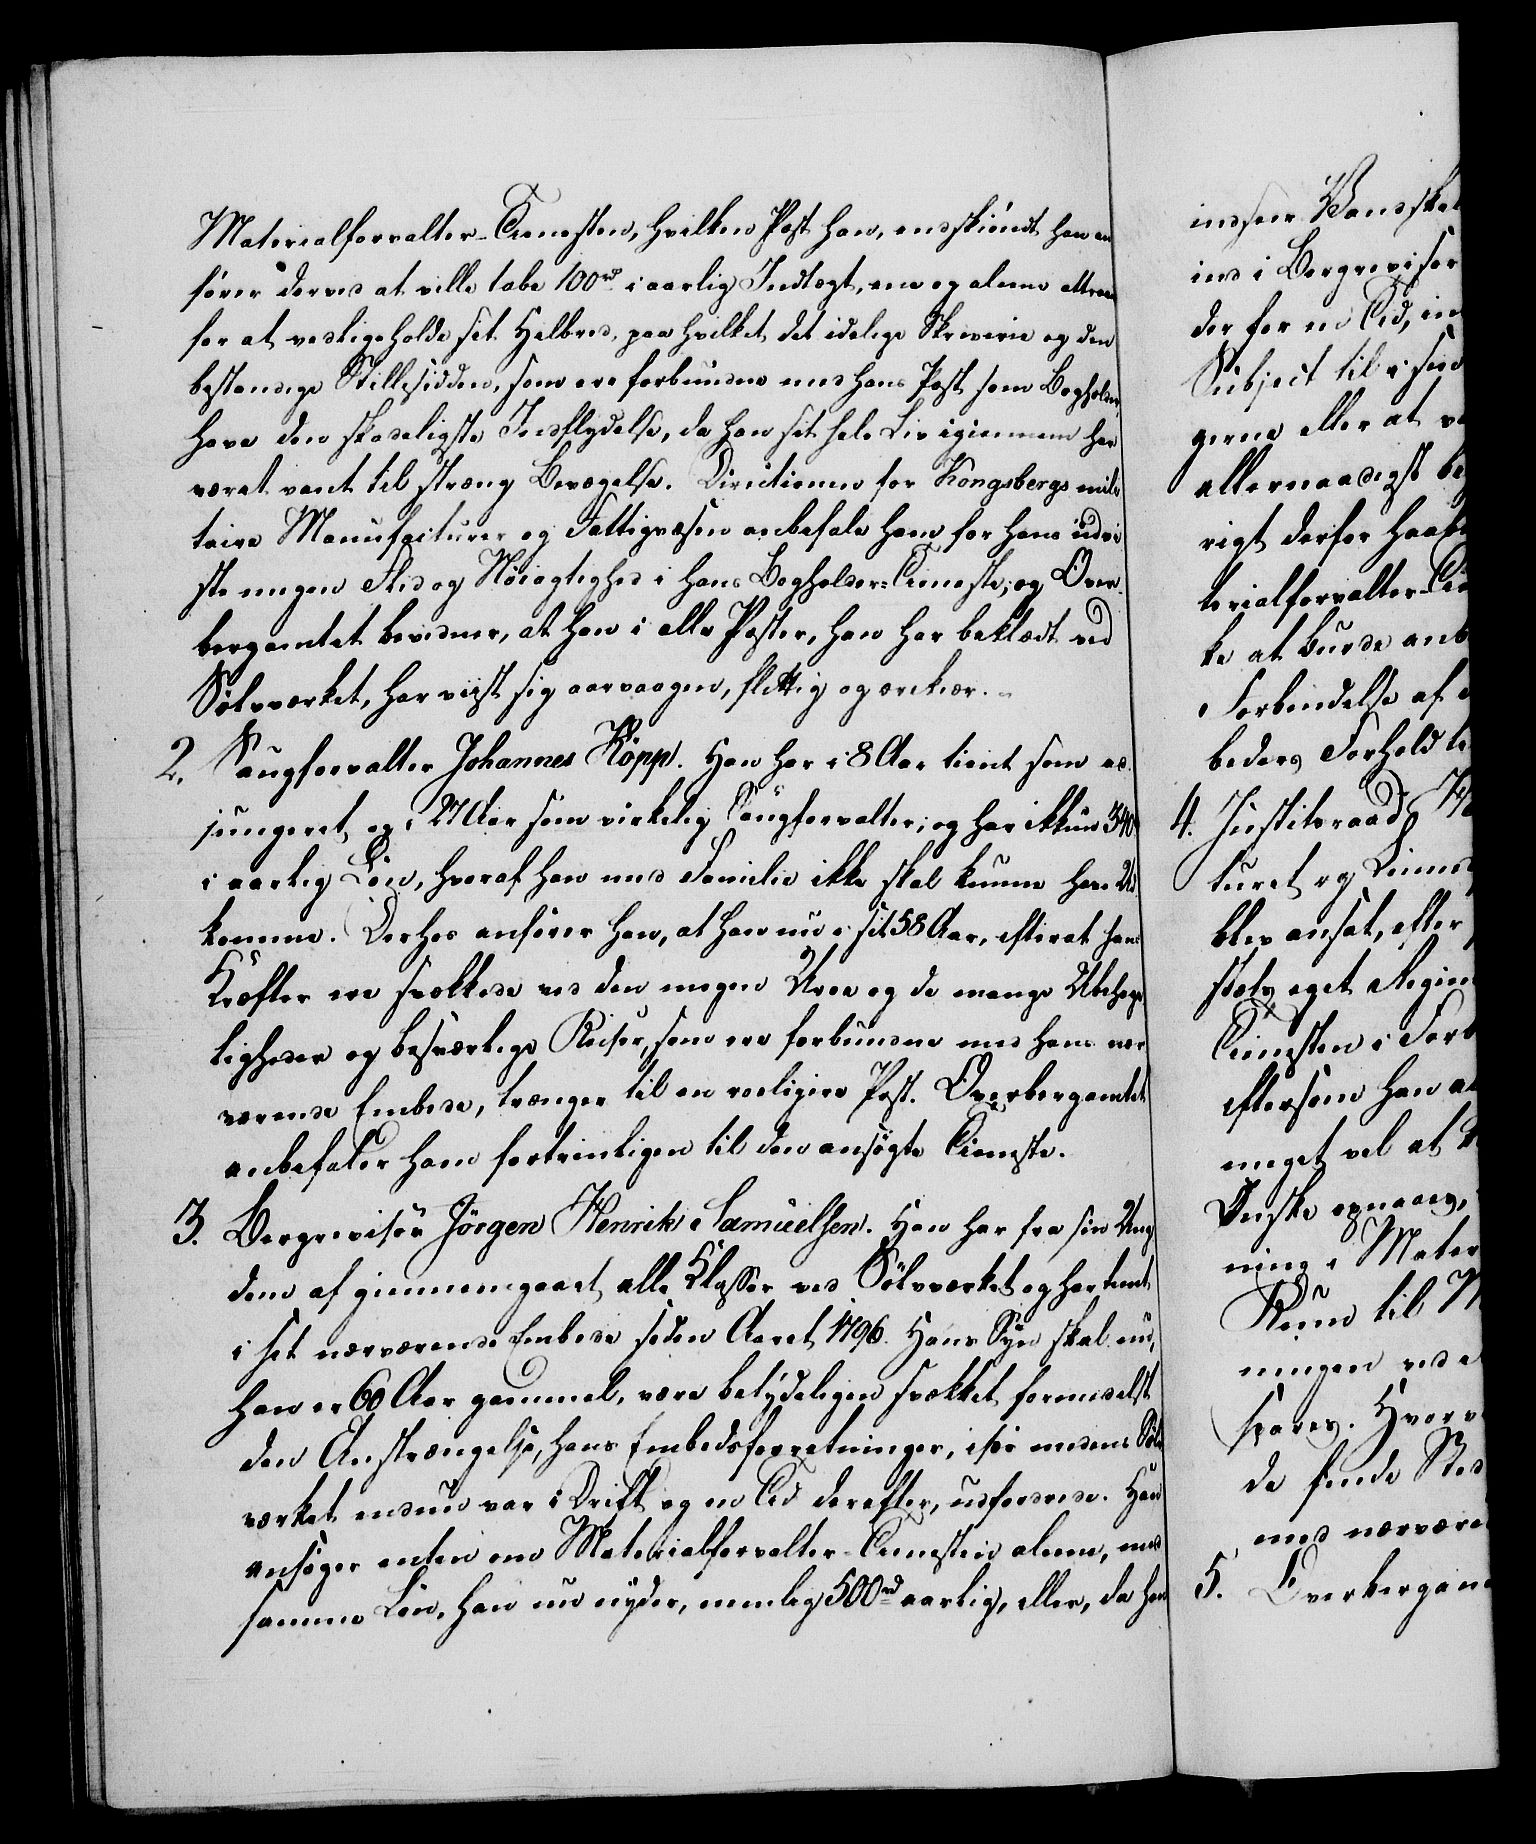 Materialforvalter-Tienesten, hvilken Post han, endskiöndt han an
förer derved at ville tabe 100 rd i aarlig Indtægt, ene og alene attraaer
for at vedligeholde sit Helbred, paa hvilket det idelige Skriverie og den
bestandige Stillesidden, som ere forbundne med hans Post som Bogholder,
have den skadeligste Indflydelse, da han sit hele Liv igiennem har
været vant til streng Bevægelse. Directionen for Kongsbergs mili
taire Manufacturer og Fattigvæsen anbefale ham for hans udvi
ste megen Flid og Nöiagtighed i hans Bogholder-Tieneste; og Over
bergamtet bevidner, at han i alle Poster, han har beklædt ved
Sölvværket, har viist sig aarvaagen, flittig og ærekiær.
2. Saugforvalter Johannes Köpp. Han har i 8 Aar tient som ad
jungeret og i 27 Aar som virkelig Saugforvalter; og har ikkun 340
i aarlig Lön, hvoraf han med Familie ikke skal kunne have Ud
komme. Derhos anförer han, at han nu i sit 58 Aar, efterat hans
Kræfter ere svækkede ved den megen Uroe og de mange Ubehage
ligheder og besværlige Reiser, som ere forbundne med hans nær
værende Embede, trænger til en roeligere Post. Overbergamtet
anbefaler ham fortrinligen til den ansögte Tieneste.
3. Bergrevisor Jörgen Henrik Samuelsen. Han har fra sin Ung
dom af giennemgaaet alle Klasser ved Sölvværket og har tient
i sit nærværende Embede siden Aaret 1796. Hans Syn skal nu,
han er 60 Aar gammel, være betydeligen svækket formedelst
den Anstrængelse, hans Embedsforretninger, især medens Sölv
værket endnu var i Drift og en Tid derefter, udfordrede. Han
ansöger enten om Materialforvalter-Tienesten alene, med
samme Lön, han nu nyder, nemlig 500 rd aarlig, eller, da han
indseer Vanskel
ind i Bergrevisor
der for en Tid, in
Subject til i sin
gerne eller at
allernaadigst be
rigt derfor haab
terialforvalter-Tie
ke at burde anb
Forbindelse af
beders Forhold te
4. Justitsraad
turet og Linned
blev ansat, efter
skelv eget Regim
Tienesten i Forb
eftersom han a
meget vel at
Önske opnaaes,
ning i Mater
Rum til M
ningen ved
spares. Hvor
de finde Sted
med nærvære
5. Overbergam